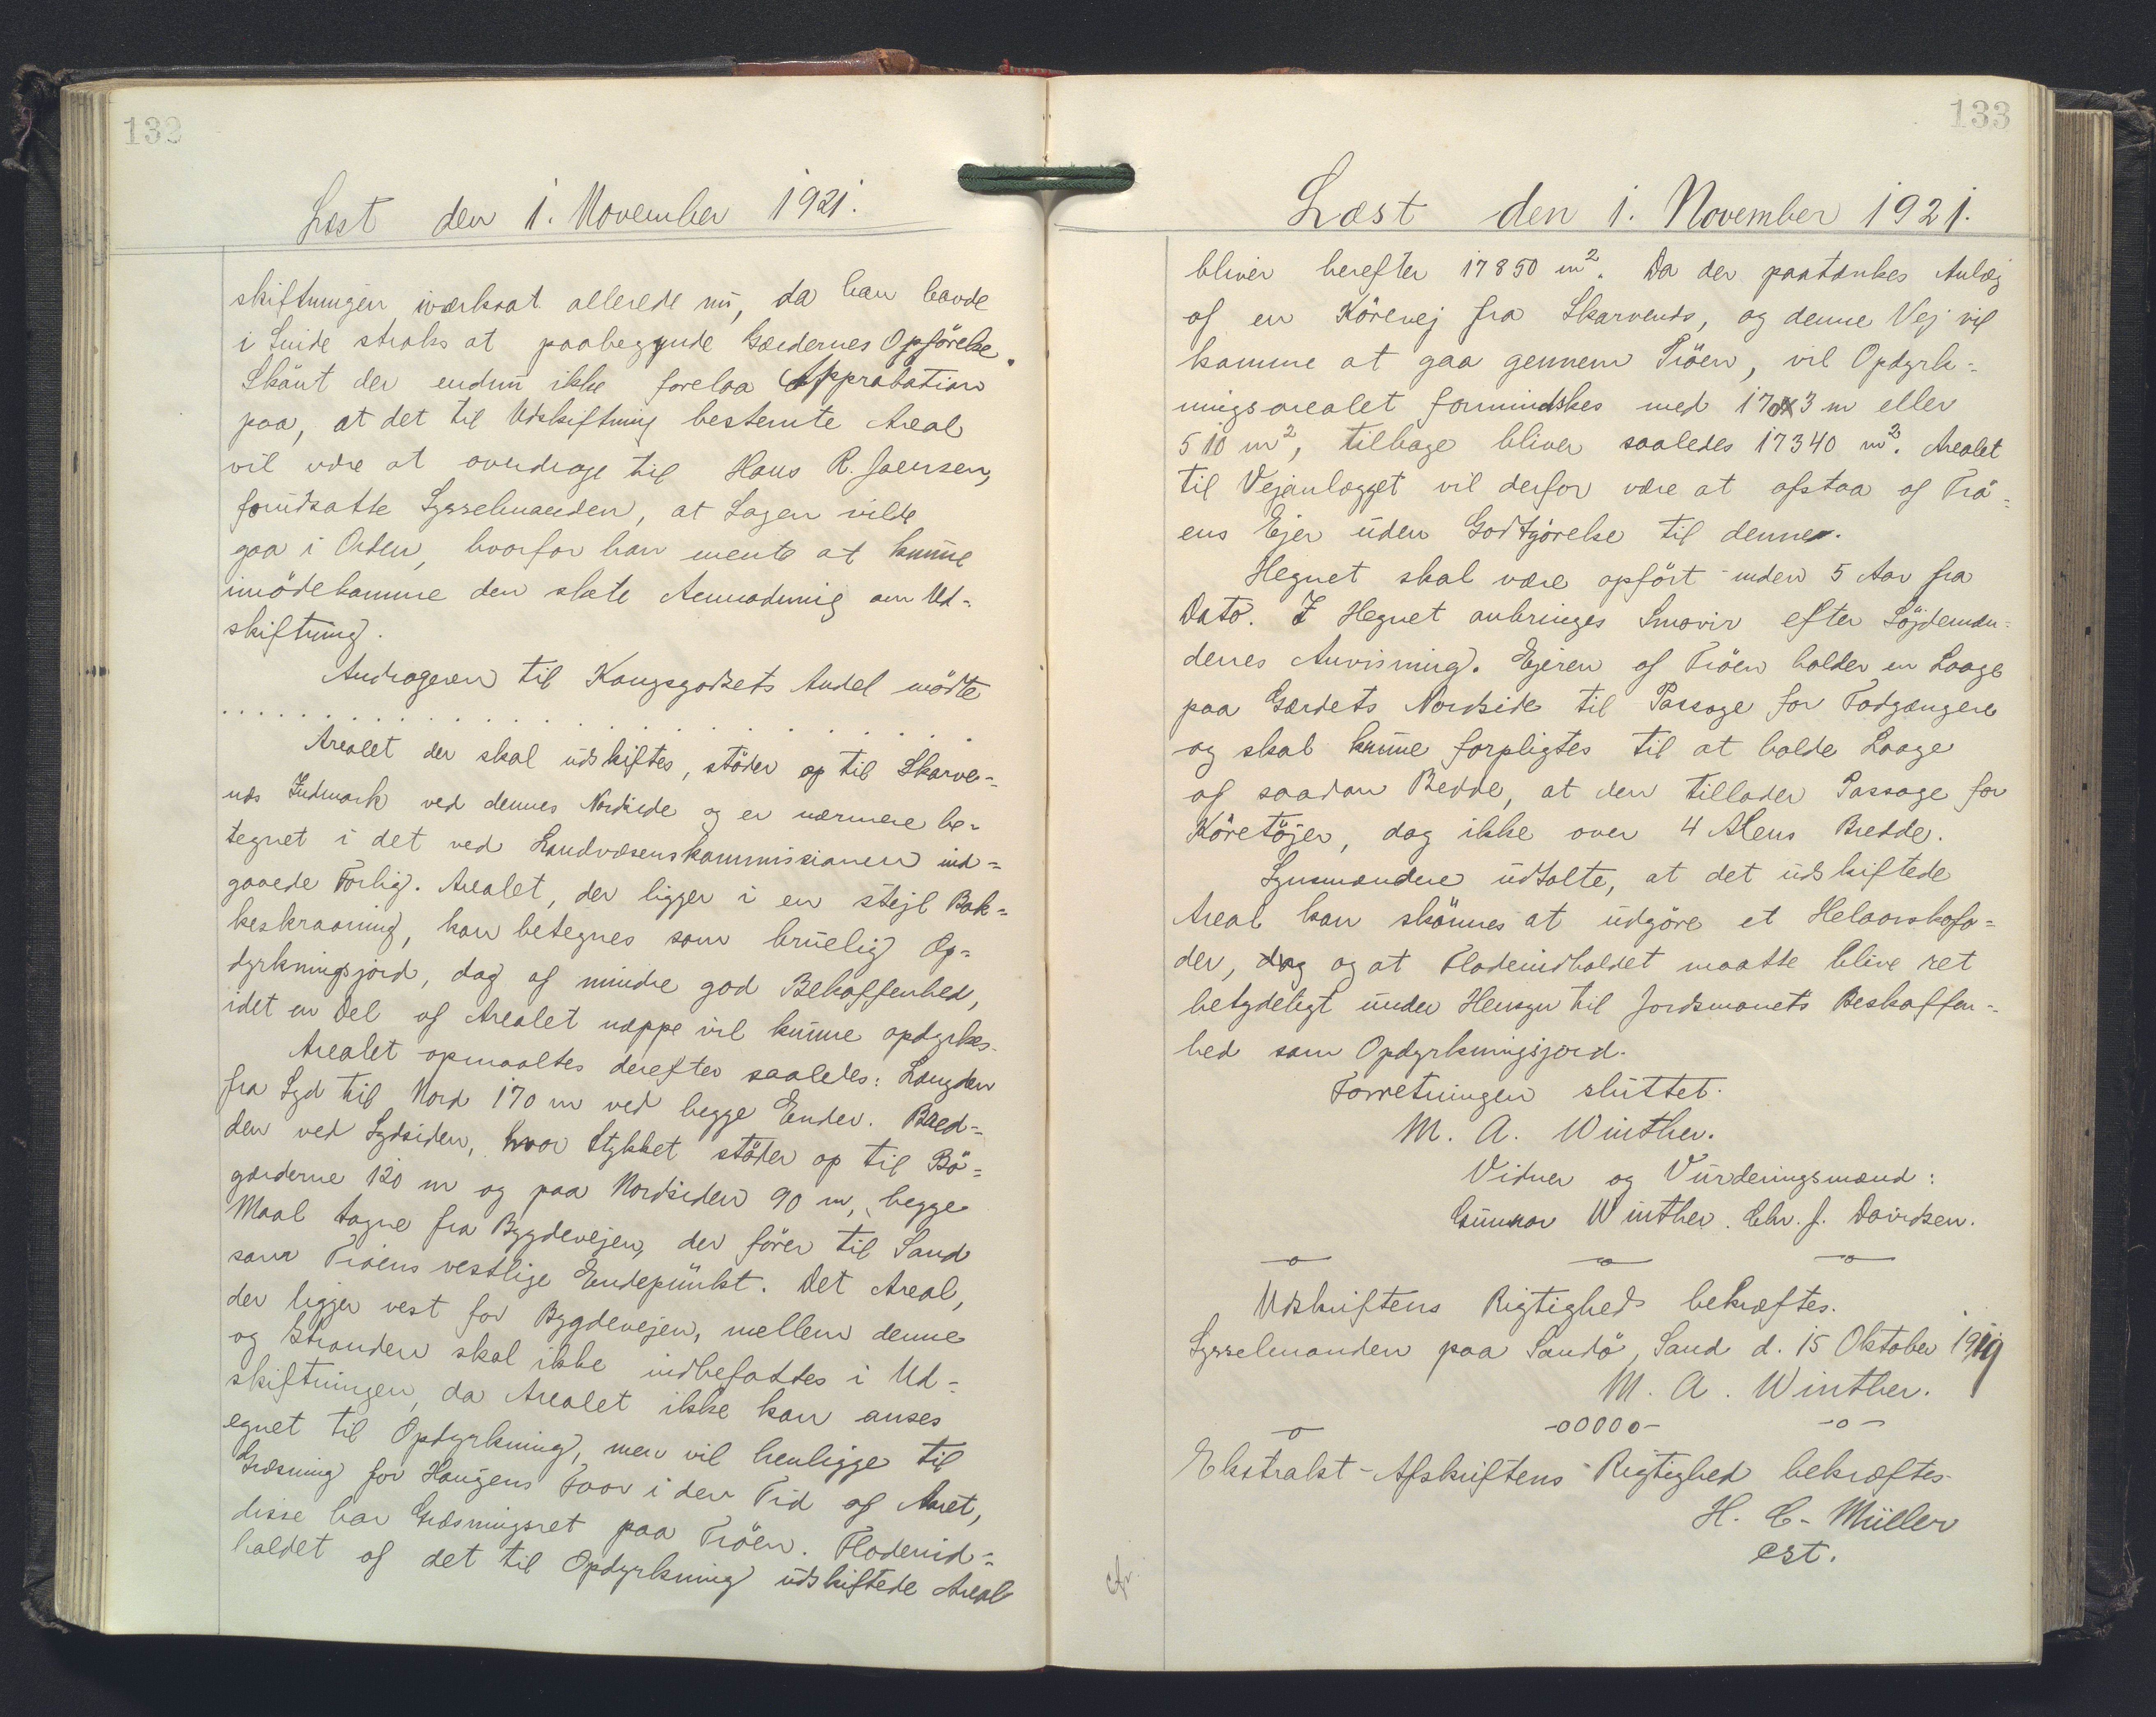 132
Læst den 1. November 1921.
skiftningen iværksat allerede nu, da han havde
i Sinde straks at paabegynde Gærdernes Opförelse.
Skönt der endnu ikke forelaa Approbation
paa, at det til Udskiftning bestemte Areal
vil være at overdrage til Hans R. Joensen,
forudsatte Sysselmanden, at Sagen vilde
gaa i Orden, hvorfor han mente at kunne
imödekomme den slete Anmodning om Ud-
skiftning.
Andrageren til Kongsgodsets Andel mödte
. . . . . . . . . . . . . . . . . . . .
Arealet der skal udskiftes, stöder op til Skarve-
næs Indmark ved dennes Nordside og er nærmere be-
tegnet i det ved Landvæsenskommissionen ind-
gaaede Forlig. Arealet, der ligger i en stejl Bak-
keskraaning, kan betegnes som bruelig Op-
dyrkningsjord, dog af mindre god Bekaffenhed,
idet en Del af Arealet næppe vil kunne opdyrkes.
Arealet opmaaltes derefter saaledes: Længden
fra Syd til Nord 170 m ved begge Ender. Bred-
den ved Sydsiden, hvor Stykket stöder op til Bö-
gærderne 120 m og paa Nordsiden 90 m, begge
Maal tagne fra Bygdevejen, der förer til Sand
som Tröens vestlige Endepunkt. Det Areal,
der ligger vest for Bygdevejen, mellem denne
og Stranden skal ikke indbefattes i Ud-
skiftningen, da Arealet ikke kan anses
egnet til Opdyrkning, men vil henligge til
Græsning for Haugens Faar i den Tid af Aaret,
disse har Græsningsret paa Tröen. Fladeind-
holdet af det til Opdyrkning udskiftede Areal
133
Læst den 1. November 1921.
bliver herefter 17850 m². Da der paatænkes Anlæg
af en Körevej fra Skarvenæs, og denne Vej vil
komme at gaa gennem Tröen, vil Opdyrk-
ningsarealet formindskes med 170x3 m eller
510 m², tilbage bliver saaledes 17340 m². Arealet
til Vejanlægget vil derfor være at afstaa af Trö-
ens Ejer uden Godtgörelse til denne.
Hegnet skal være opfört inden 5 Aar fra
Dato. I Hegnet anbringes Smovir efter Söjdemæn-
denes Anvisning. Ejeren af Tröen holder en Laage
paa Gærdets Nordside til Passage for Fodgængere
og skal kunne forpligtes til at holde Laage
af saadan Bredde, at den tillader Passage for
Köretöjer, dog ikke over 4 Alens Bredde.
Synsmændene udtalte, at det udskiftede
Areal kan skönnes at udgöre et Helaarskofo-
der, dog og at Fladeindholdet maatte blive ret
betydeligt under Hensyn til Jordsmonets Beskaffen-
hed som Opdyrkningsjord.
Forretningen sluttet.
M. A. Winther.
Vidner og Vurderingsmænd:
Gunnar Winther. Chr. J. Davidsen.
Udskriftens Rigtighed bekræftes.
Sysselmanden paa Sandö, Sand d. 15 Oktober 1919
M. A. Winther.
-o -ooooo- -o-
Ekstrakt-Afskriftens Rigtighed bekræftes
H. C. Müller
cst.
cfr.